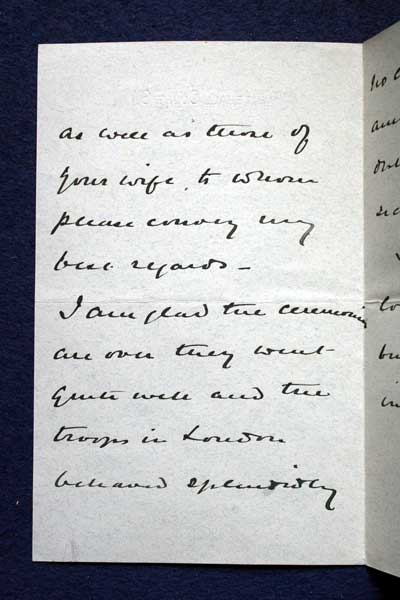 as well as those of
your wife, to whom
please convey my
best regards –
I am glad the ceremonies
are over they went
quite well and the
troops in London
behaved splendidly